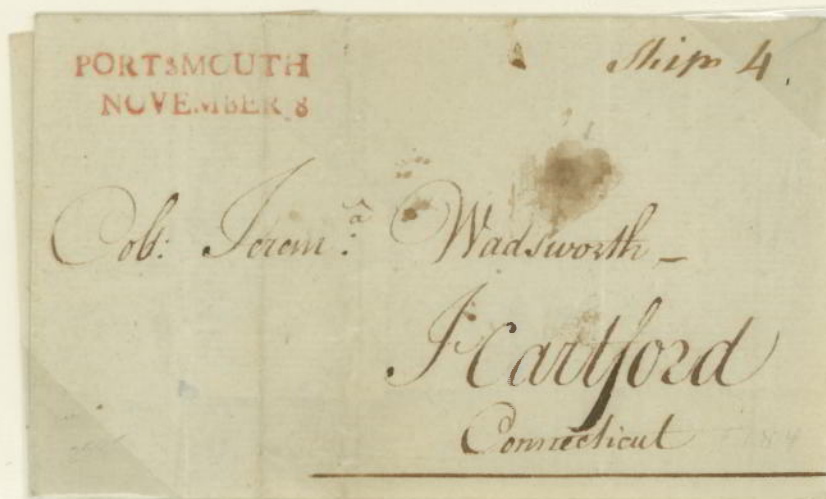 PORTSMOUTH
NOVEMBER 8
Ship 4
Col: Jerem.ª Wadsworth
Hartford
Connecticut